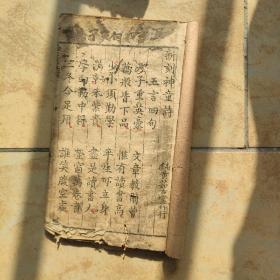 新刻神童詩
五言四句
天子重英豪 文章教爾曹
萬般皆下品 惟有讀書高
少小須勤學 可立身
滿朝朱紫貴 盡是讀書人
學問勤中得 螢窗萬卷書
三冬今足用 誰笑腹空虛